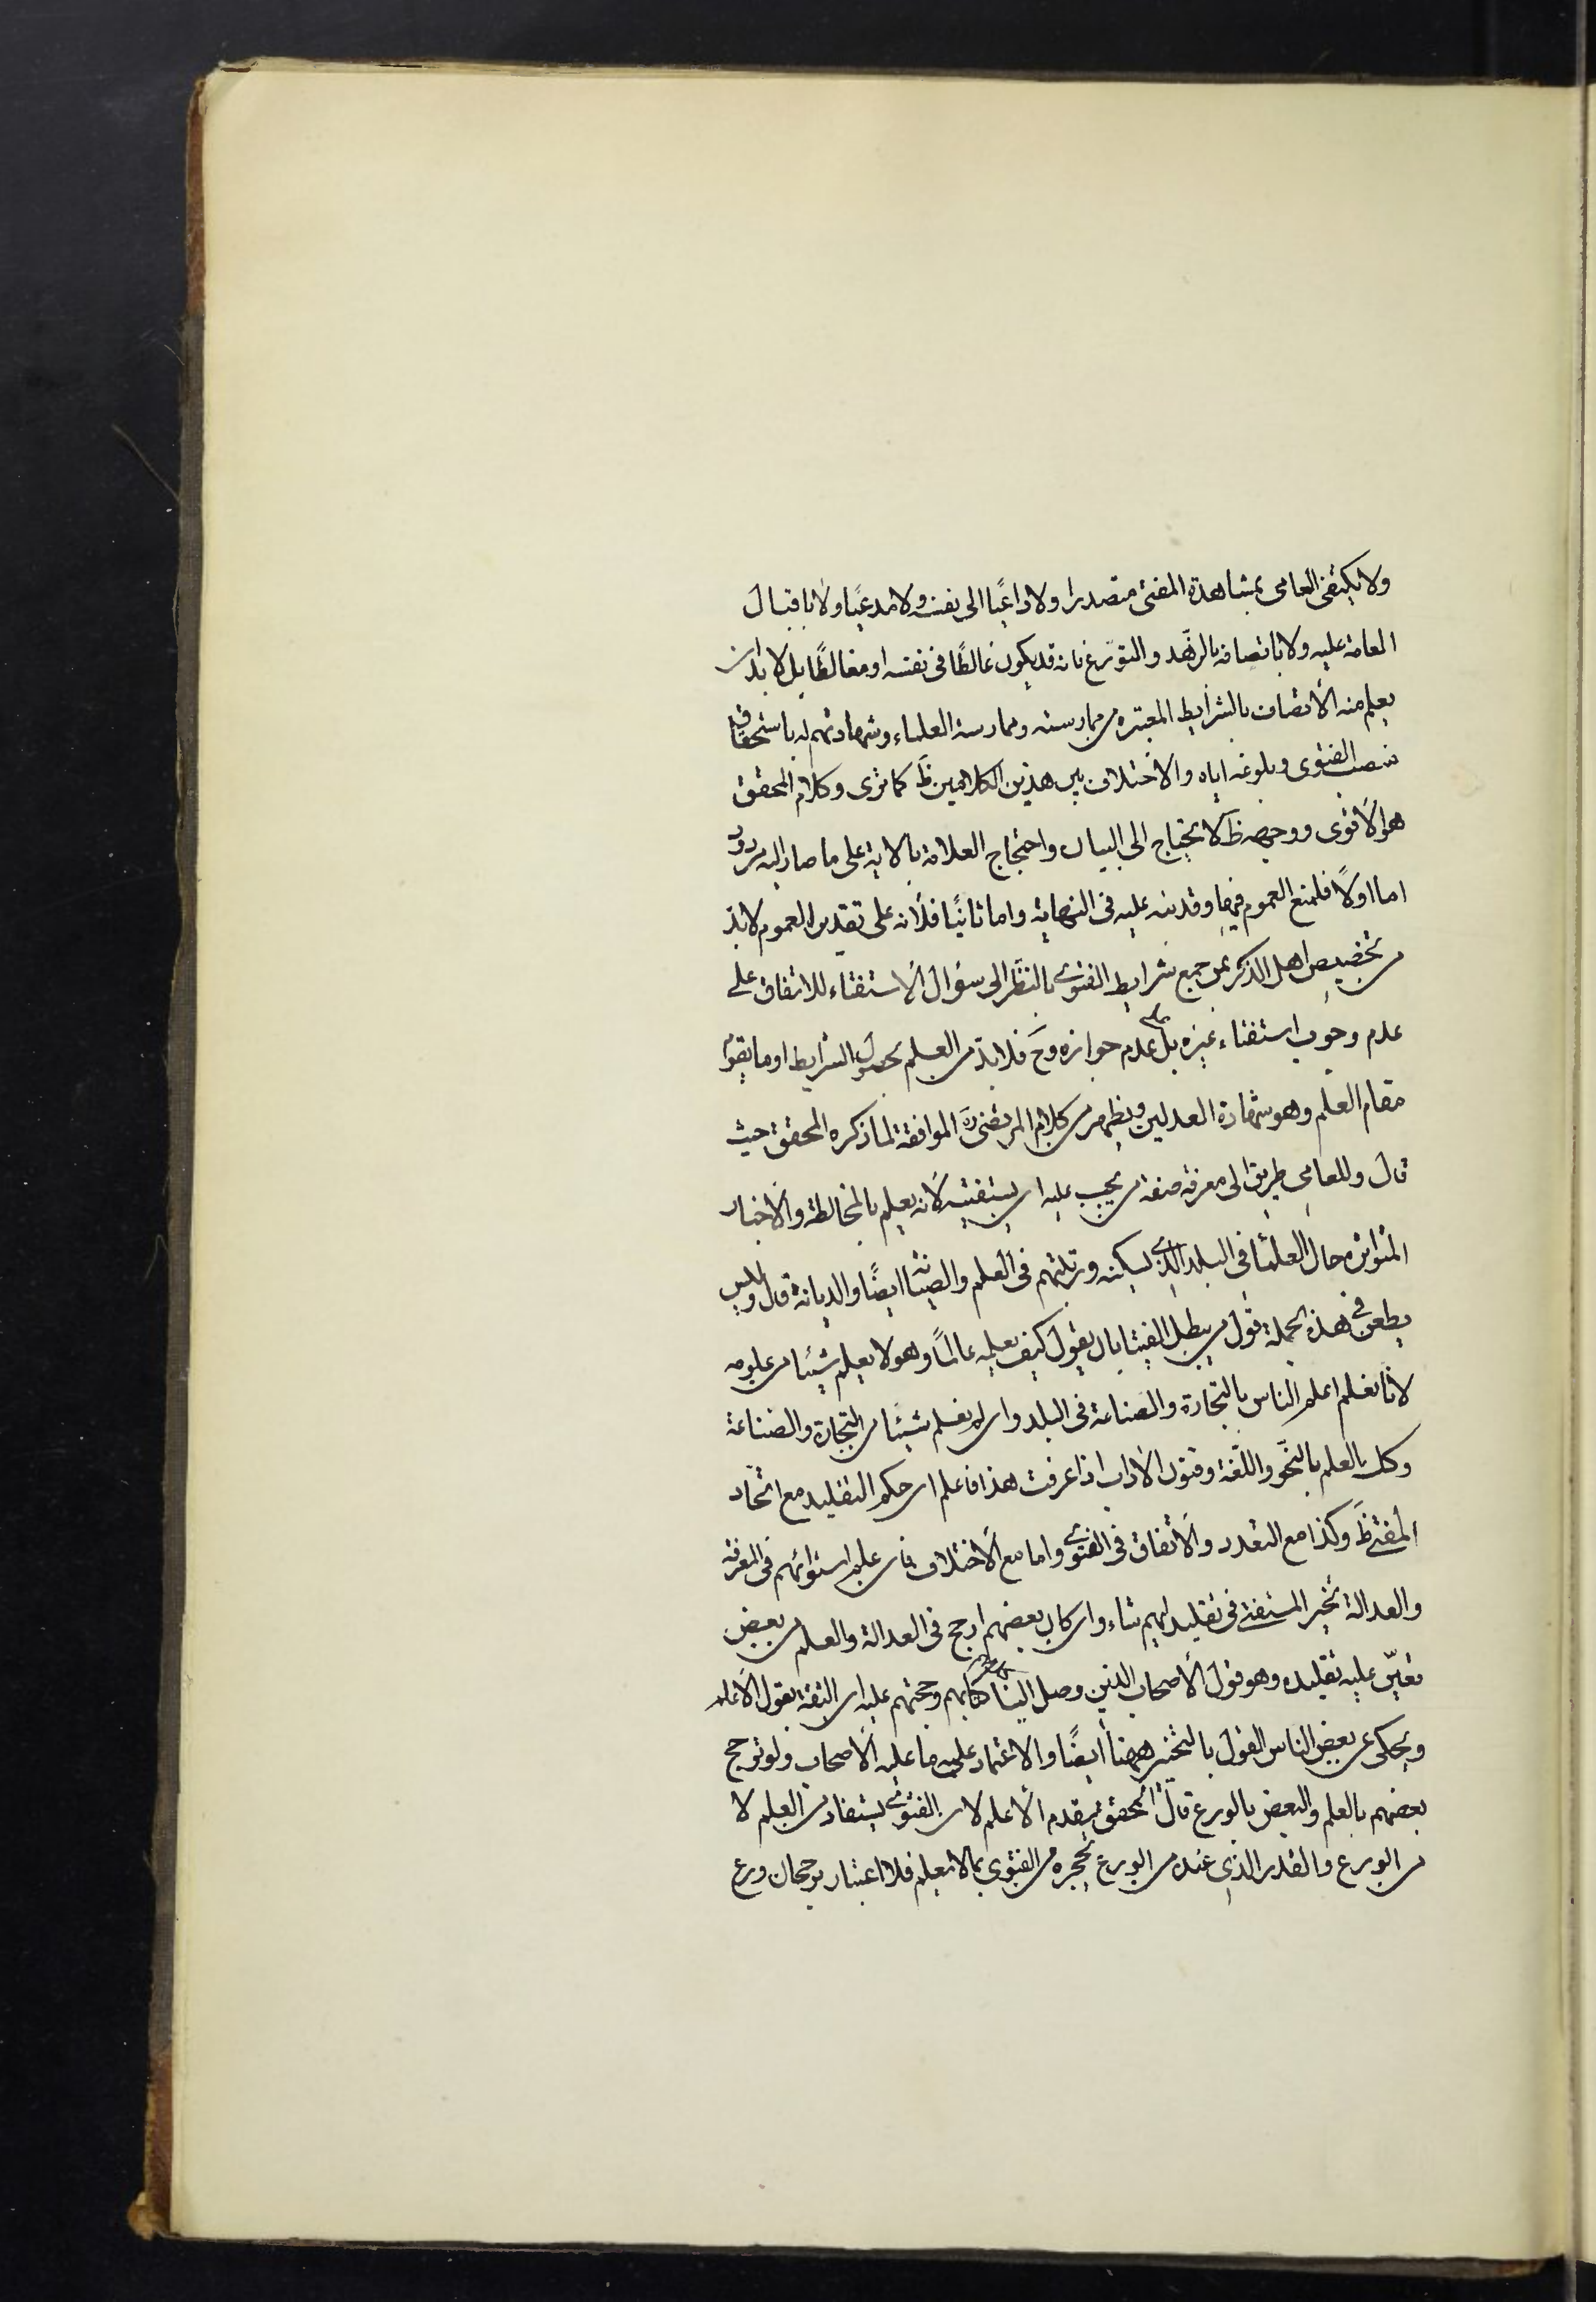 ولا يكتفى العامى بمشاهدة المفتى متصدرا ولا داعيًا الى نفسه ولا مدعيًا ولا باقبال
العامة عليه ولا باتصافه بالزهّد والتوّرع فانه قد يكون غالطًا فى نفسه او مغالطًا بل لا بد ان
يعلم منه الأتصاف بالشرايط المعتبره من ممارسته وممارسة العلماء وشهادتهم له باستحقاق
نصب الفتوى وبلوغه اياه والاختلاف بين هذين الكلامين ظَ كما ترى وكلام المحقق
هو الأقوى ووجهه ظَ لا يحتاج الى البيان واحتجاج العلامة بالاية على ما صار اليه مردود
اما اولًا فلمنع العموم فيها وقد نبه عليه فى النهاية واما ثانيًا فلأنه على تقدير العموم لا بدّ
من تخصيص اهل الذكر بمن جمع شرايط الفتوى بالنظر الى سؤال الاستفتاء للاتفاق على
عدم وجوب استفتاء غيره بل عدم جوازه وحَ فلا بدّ من العلم بحصول الشرايط او ما يقوم
مقام العلم وهو شهادة العدلين ويظهر من كلام المرتضى رَه الموافقة لما ذكره المحقق حيث
قال وللعامى طريق الى معرفة صفة من يجب عليه ان يستفتيه لأنه يعلم بالمخالطة والاخبار
المتواتره حال العلماء فى البلد الذى يسكنه ورتبتهم فى العلم والصيانة ايضًا والديانة قال وليس
يطعن فى هذه الجملة قول من يبطل الفتيا بان يقول كيف يعلمه عالمًا وهو لا يعلم شيئا من علومه
لانا نعلم اعلم الناس بالتجارة والصناعة فى البلد وان لم نعلم شيئا من التجارة والصناعة
وكك العلم بالنحّو واللغّة وفنون الاداب اذا عرفت هذا فاعلم ان حكم التقليد مع اتحّاد
المفتى ظَ وكذا مع التعدد والأتفاق فى الفتوى واما مع الأختلاف فان علم استوائهم فى المعرفة
والعدالة تخير المستفتى فى تقليد ايهم شاء وان كان بعضهم ارجح فى العدالة والعلم من بعض
تعيّن عليه تقليده وهو قول الأصحاب الذين وصل الينا كلامهم وحجتهم عليه ان الثقة بقول الأعلم
ويحكى عن بعض الناس القول بالتخير ههنا ايضًا والاعتماد على ما عليه الأصحاب ولو ترجح
بعضهم بالعلم والبعض بالورع قال المحقق يقدم الأعلم لان الفتوى يستفاد من العلم لا
من الورع والقدر الذى عنده من الورع يحجره من الفتوى بما لا يعلم فلا اعتبار برجحان ورع